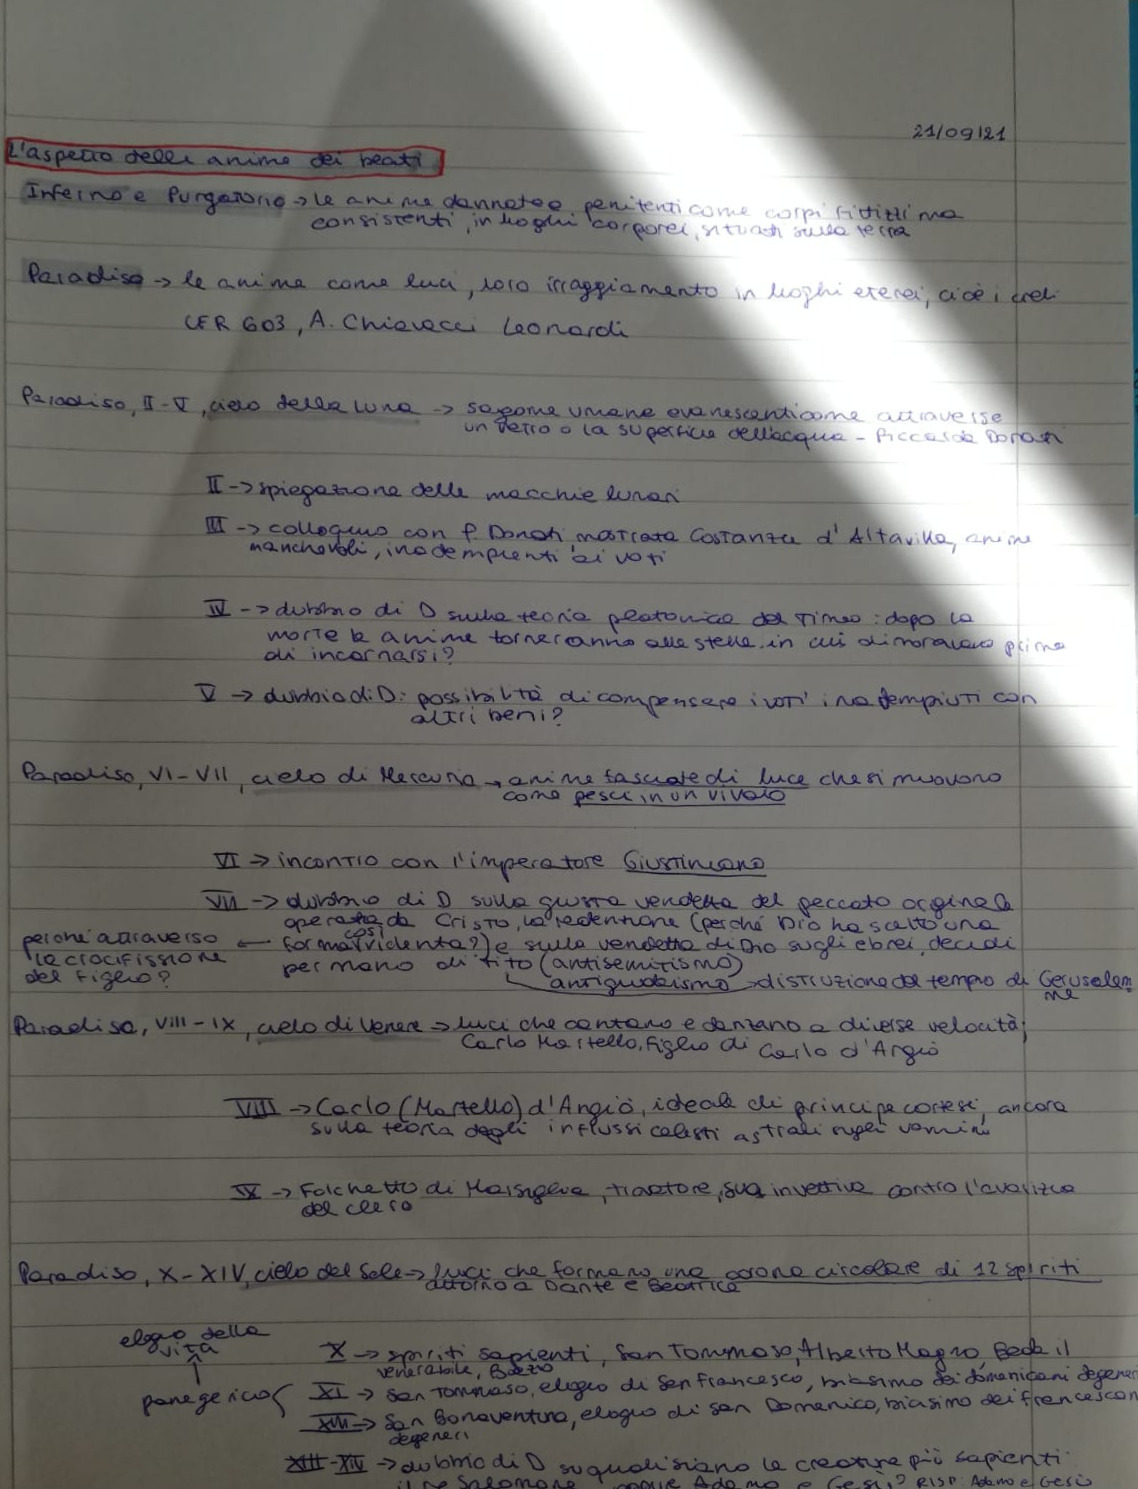 21/09/21
L'aspetto delle anime dei beati
Inferno e Purgatorio → le anime dannate e penitenti come corpi fittizi ma
consistenti, in luoghi corporei, situati sulla terra
Paradiso → le anime come luci, loro irraggiamento in luoghi eterei, cioè i cieli
CFR 603, A. Chiavacci Leonardi
Paradiso, II-V, cielo della Luna → sagome umane evanescenti come attraverse
un vetro o la superficie dell'acqua - Piccarda Donati
II → spiegazione delle macchie lunari
III → colloquio con P Donati mostrata Costanza d'Altavilla, anime
manchevoli, inadempienti ai voti
IV → dubbio di D sulla teoria platonica del Timeo: dopo la
morte le anime torneranno alle stelle in cui dimoravano prima
di incarnarsi?
V → dubbio di D: possibilità di compensare i voti inadempiuti con
altri beni?
Paradiso, VI-VII, cielo di Mercurio → anime fasciate di luce che si muovono
come pesci in un vivaio
VI → incontro con l'imperatore Giustiniano
VII → dubbio di D sulla giusta vendetta del peccato originale
operata da Cristo, la redenzione (perché Dio ha scelto una
così
perché attraverso ← forma violenta?) e sulla vendetta di Dio sugli ebrei, decidi
la crocifissione per mano di Tito (antisemitismo)
del Figlio? antigiudaismo → distruzione del tempio di Gerusalem
me
Paradiso, VIII-IX, cielo di Venere → luci che cantano e danzano a diverse velocità;
Carlo Martello, figlio di Carlo d'Angiò
VIII → Carlo (Martello) d'Angiò, ideale di principe cortese, ancora
sulla teoria degli influssi celesti astrali sugli uomini
IX → Folchetto di Marsiglia, trovatore, sua invettiva contro l'avarizia
del clero
Paradiso, X-XIV, cielo del Sole → luci che formano una corona circolare di 12 spiriti
attorno a Dante e Beatrice
elogio della
vita
X → spiriti sapienti, San Tommaso, Alberto Magno, Beda il
venerabile, Boezio
panegirico XI → San Tommaso, elogio di San Francesco, biasimo dei domenicani degeneri
XII → San Bonaventura, elogio di San Domenico, biasimo dei francescani
degeneri
XIII-XIV → dubbio di D su quali siano le creature più sapienti:
il re Salomone Adamo e Gesù? RISP: Adamo e Gesù